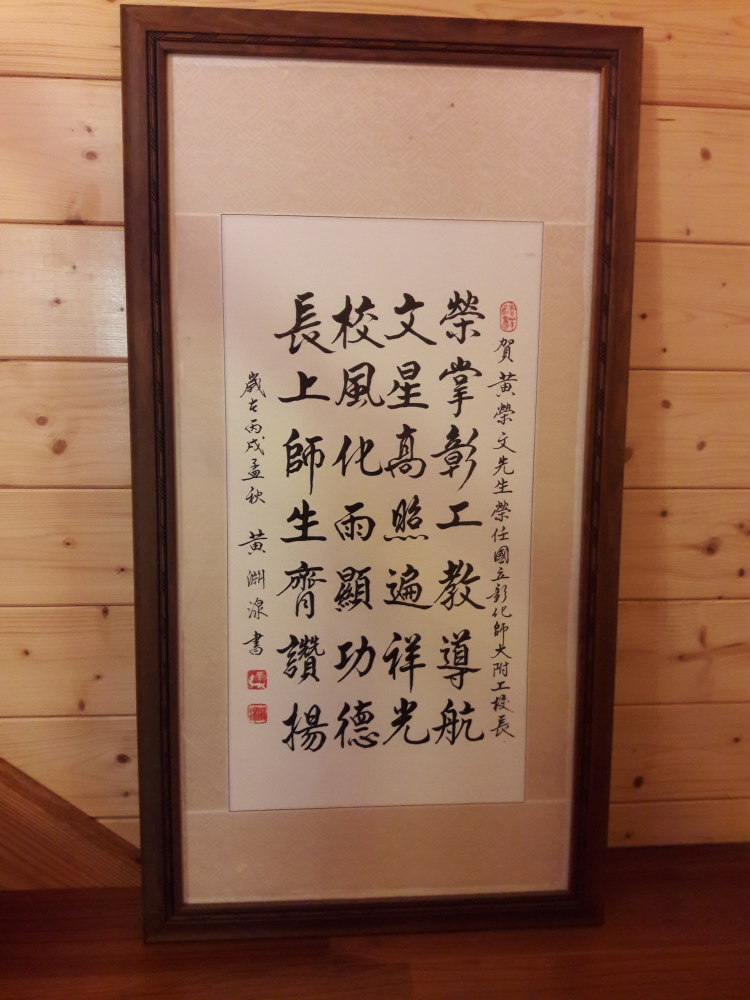 賀黃榮文先生榮任國立彰化師大附工校長
榮掌彰工教導航
文星高照遍祥光
校風化雨顯功德
長上師生齊讚揚
歲在丙戌孟秋 黃淵源書